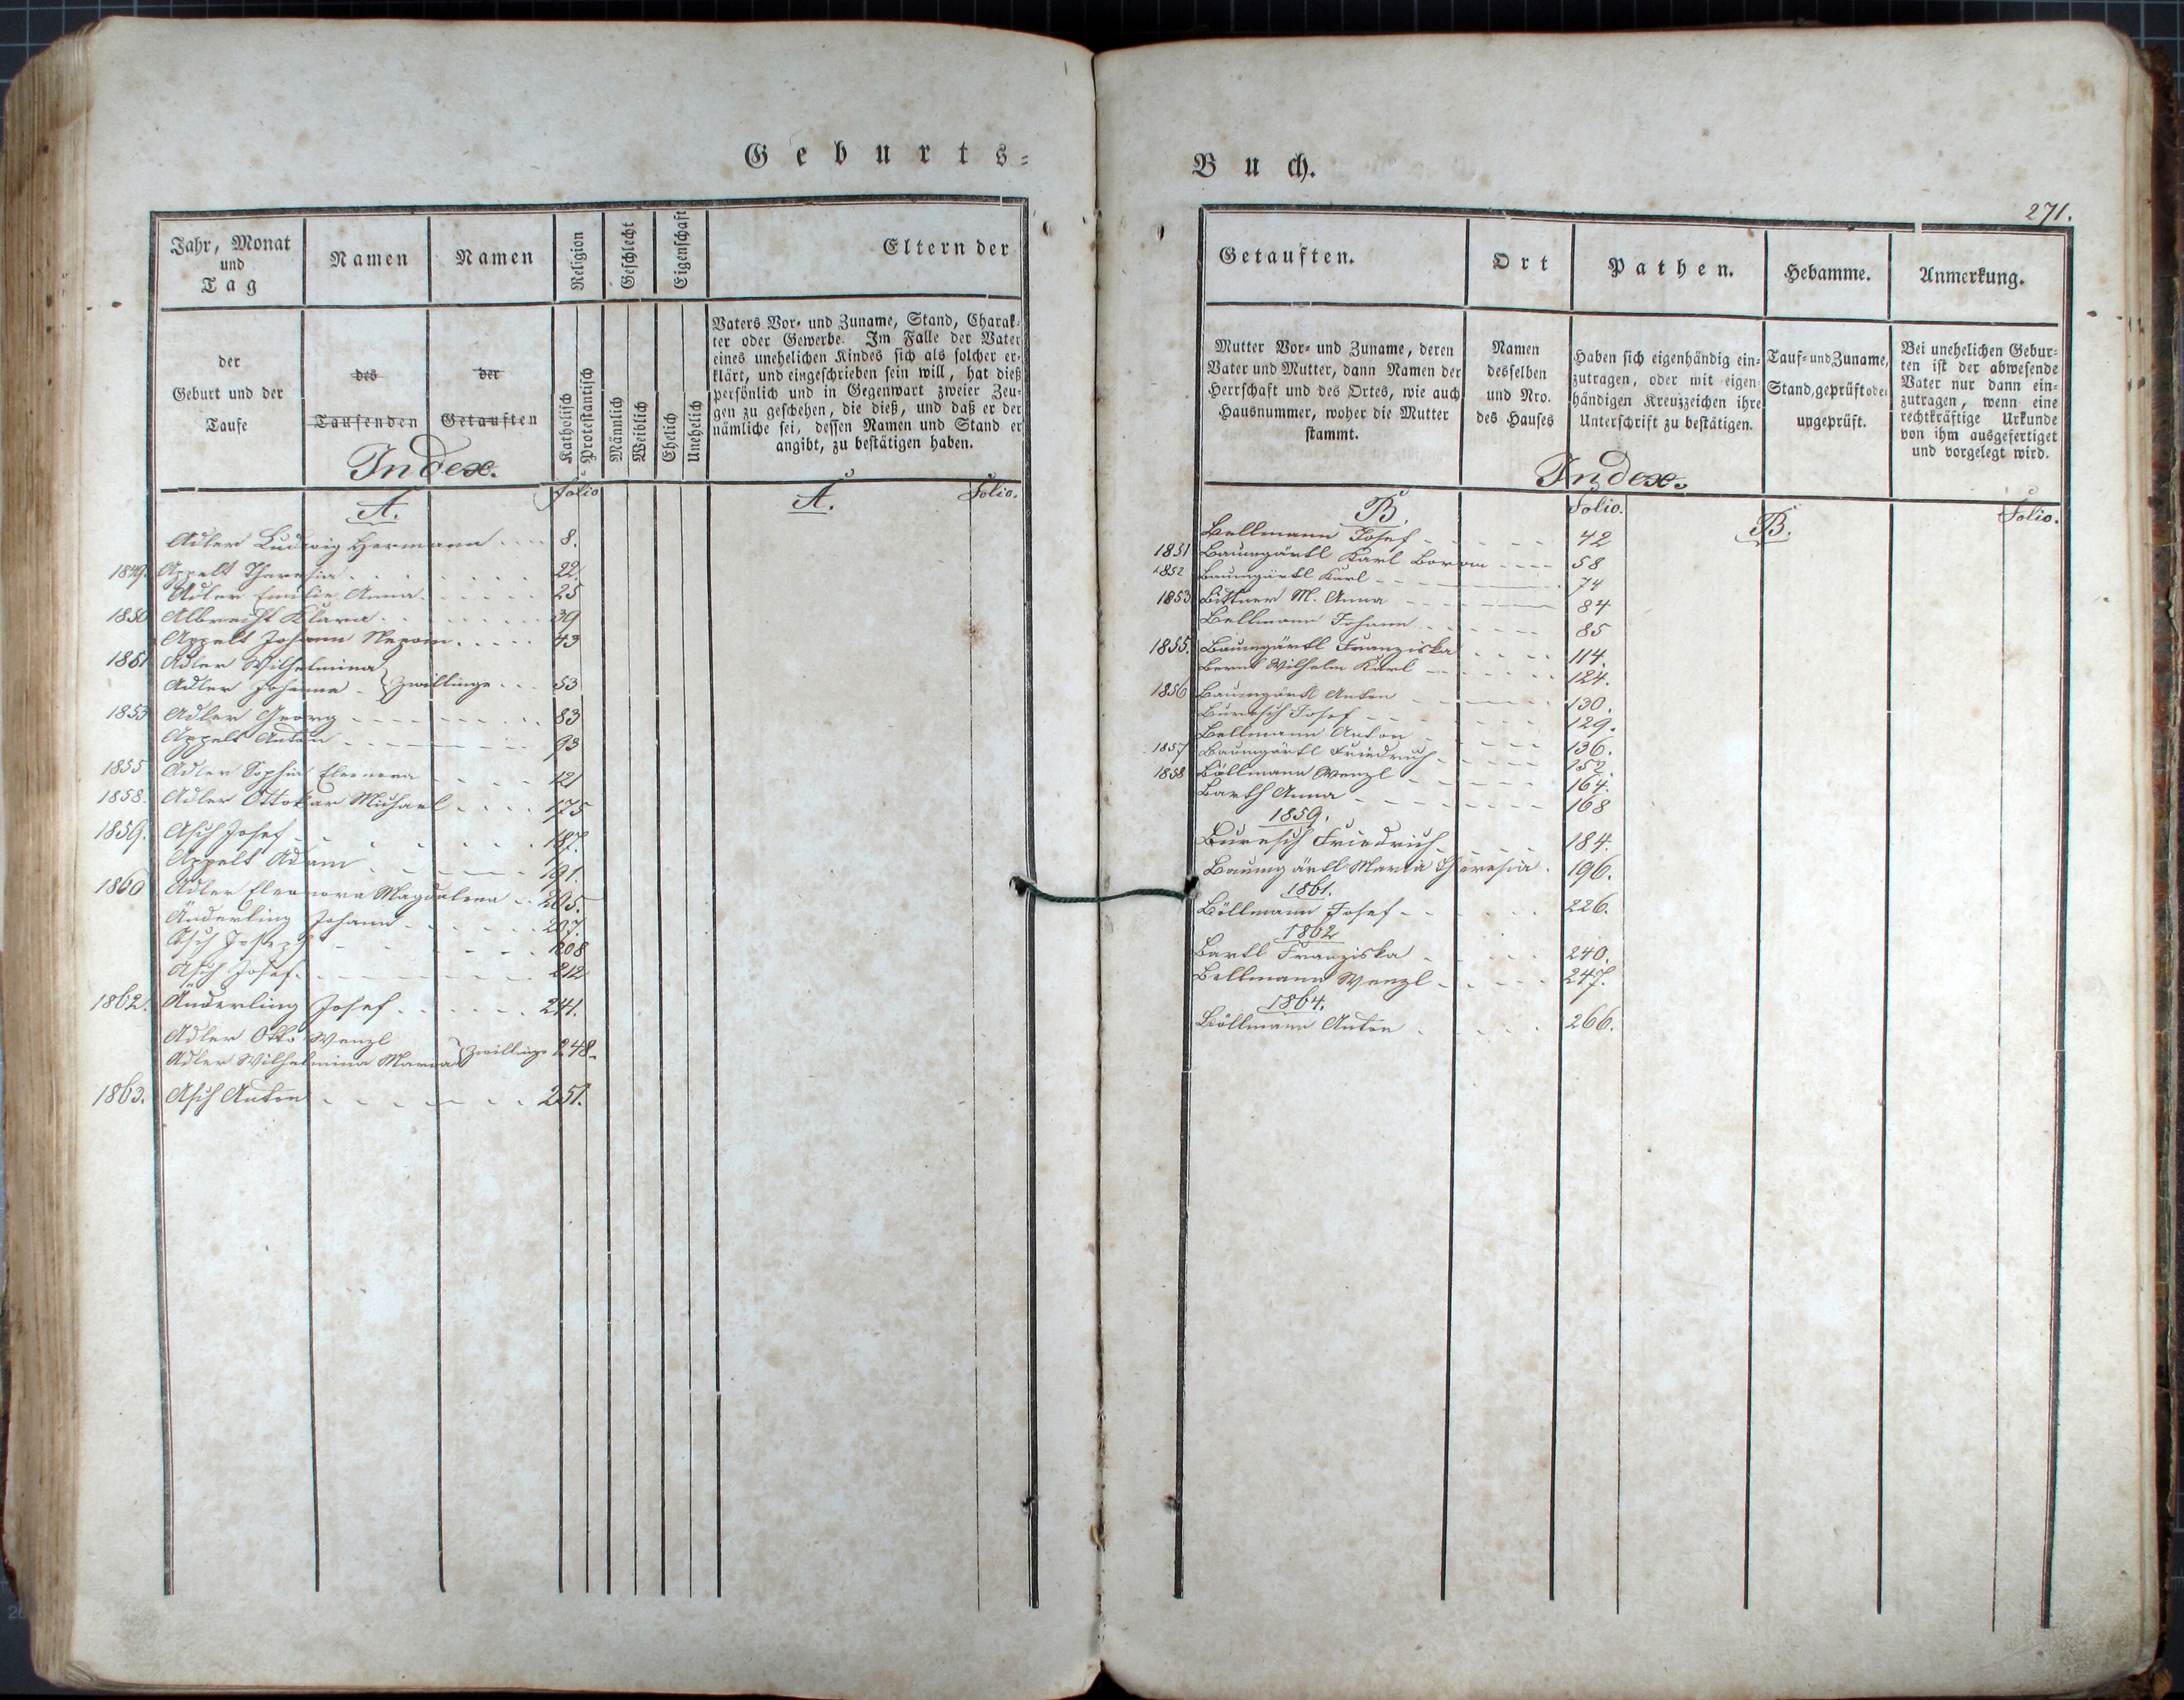 Geburts-
Jahr, Monat
und
Tag
Namen
Namen
Religion
Geschlecht
Eigenschaft
Eltern der
der
Geburt und der
Taufe
des
Taufenden
der
Getauften
Katholisch
Protestantisch
Männlich
Weiblich
Ehelich
Unehelich
Vaters Vor- und Zuname, Stand, Charak-
ter oder Gewerbe. Im Falle der Vater
eines unehelichen Kindes sich als solcher er-
klärt, und eingeschrieben sein will, hat dieß
persönlich und in Gegenwart zweier Zeu-
gen zu geschehen, die dieß, und daß er der
nämliche sei, dessen Namen und Stand er
angibt, zu bestätigen haben.
Index.
A. Folio
Adler Ludwig Hermann 8.
1849. Appelt Theresia 22.
Adler Emilie Anna 25
1850 Albrecht Klara 39
Appelt Johann Nepom. 43
1851 Adler Wilhelmina
Adler Johanna } Zwillinge 53
1853 Adler Georg 83
Appelt Anton 93
1855 Adler Sophia Eleonora 121
1858. Adler Ottokar Michael 175
1859. Asch Josef 187.
Appelt Adam 191.
1860 Adler Eleonora Magdalena 205.
Änderling Johann 207.
Asch Joseph 208
Asch Josef 212
1862. Änderling Josef 241.
Adler Otto Wenzl
Adler Wilhelmina Maria } Zwillinge 248.
1863. Asch Anton 251.
A. Folio.
Buch.
271.
Getauften.
Ort
Pathen.
Hebamme.
Anmerkung.
Mutter Vor- und Zuname, deren
Vater und Mutter, dann Namen der
Herrschaft und des Ortes, wie auch
Hausnummer, woher die Mutter
stammt.
Namen
desselben
und Nro.
des Hauses
Haben sich eigenhändig ein-
zutragen, oder mit eigen-
händigen Kreuzzeichen ihre
Unterschrift zu bestätigen.
Tauf- und Zuname,
Stand, geprüft oder
ungeprüft.
Bei unehelichen Gebur-
ten ist der abwesende
Vater nur dann ein-
zutragen, wenn eine
rechtkräftige Urkunde
von ihm ausgefertiget
und vorgelegt wird.
Index.
B. Folio.
Bellmann Josef 42
1851 Baumgärtl Karl Borom 58
1852 Baumgärtl Karl 74
1853 Bittner M. Anna 84
Bellmann Johann 85
1855. Baumgärtl Franziska 114.
Bernt Wilhelm Karl 124.
1856 Baumgärtl Anton 130.
Buresch Josef 129.
Bellmann Anton 136.
1857 Baumgärtl Friedrich 152.
1858 Böllmann Wenzl 164.
Barth Anna 168
1859.
Buresch Friedrich 184.
Baumgärtl Maria Theresia 196.
1861.
Böllmann Josef 226.
1862
Bartl Franziska 240.
Bellmann Wenzl 247.
1864.
Böllmann Anton 266.
B. Folio.